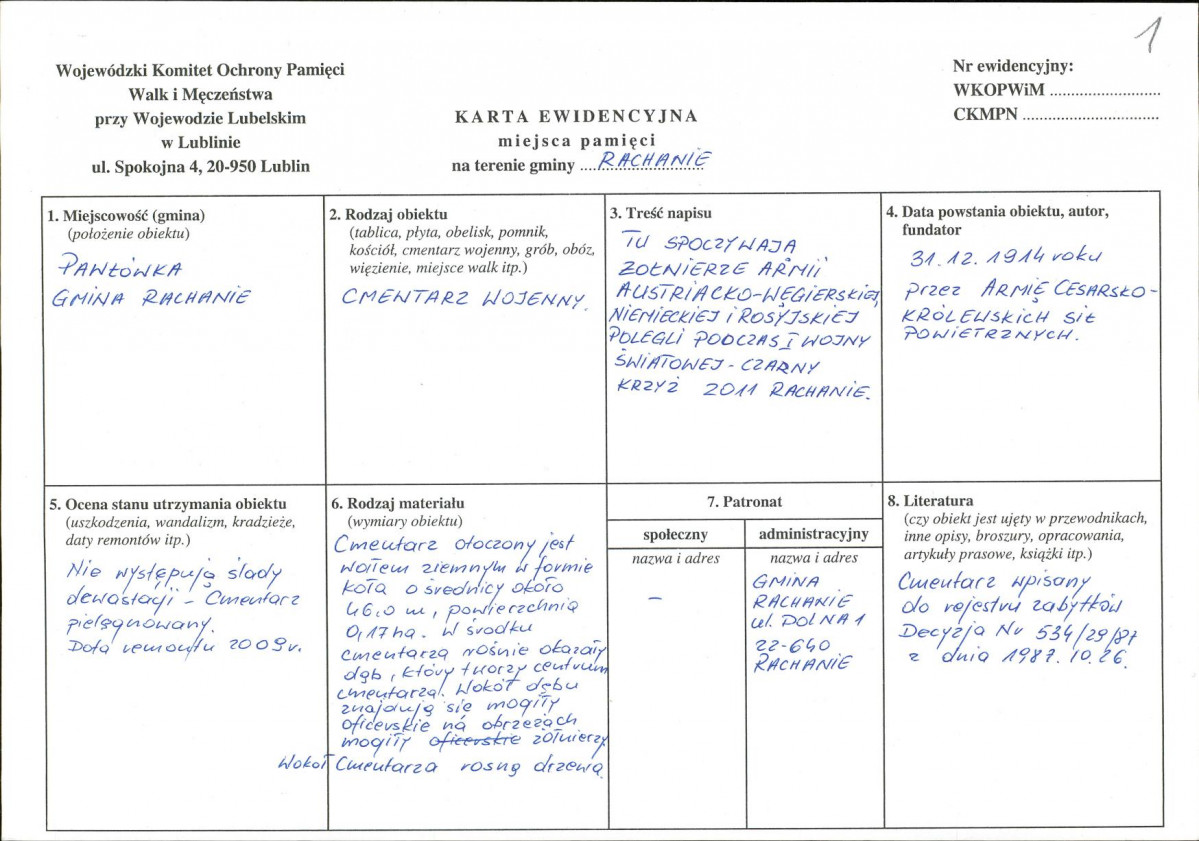 1
Wojewódzki Komitet Ochrony Pamięci
Walk i Męczeństwa
przy Wojewodzie Lubelskim
w Lublinie
ul. Spokojna 4, 20-950 Lublin
KARTA EWIDENCYJNA
miejsca pamięci
na terenie gminy ....RACHANIE
Nr ewidencyjny:
WKOPWiM ..........................
CKMPN ................................
1. Miejscowość (gmina)
(położenie obiektu)
PAWŁÓWKA
GMINA RACHANIE
2. Rodzaj obiektu
(tablica, płyta, obelisk, pomnik,
kościół, cmentarz wojenny, grób, obóz,
więzienie, miejsce walk itp.)
CMENTARZ WOJENNY.
3. Treść napisu
TU SPOCZYWAJĄ
ŻOŁNIERZE ARMII
AUSTRIACKO-WĘGIERSKIEJ,
NIEMIECKIEJ i ROSYJSKIEJ
POLEGLI PODCZAS I WOJNY
ŚWIATOWEJ - CZARNY
KRZYŻ 2011 RACHANIE.
4. Data powstania obiektu, autor,
fundator
31.12.1914 roku
przez ARMIĘ CESARSKO-
KRÓLEWSKICH SIŁ
POWIETRZNYCH.
5. Ocena stanu utrzymania obiektu
(uszkodzenia, wandalizm, kradzieże,
daty remontów itp.)
Nie występują ślady
dewastacji - Cmentarz
pielęgnowany.
Data remontu 2009r.
6. Rodzaj materiału
(wymiary obiektu)
Cmentarz otoczony jest
wałem ziemnym w formie
koła o średnicy około
46,0 m, powierzchnia
0,17ha. W środku
cmentarza rośnie okazały
dąb, który tworzy centrum
cmentarza. Wokół dębu
znajdują się mogiły
oficerskie na obrzeżach
mogiły oficerskie żołnierzy
Wokół Cmentarza rosną drzewa.
7. Patronat
społeczny
nazwa i adres
–
administracyjny
nazwa i adres
GMINA
RACHANIE
ul. DOLNA 1
22-640
RACHANIE
8. Literatura
(czy obiekt jest ujęty w przewodnikach,
inne opisy, broszury, opracowania,
artykuły prasowe, książki itp.)
Cmentarz wpisany
do rejestru zabytków
Decyzja Nr 534/29/87
z dnia 1987.10.26.